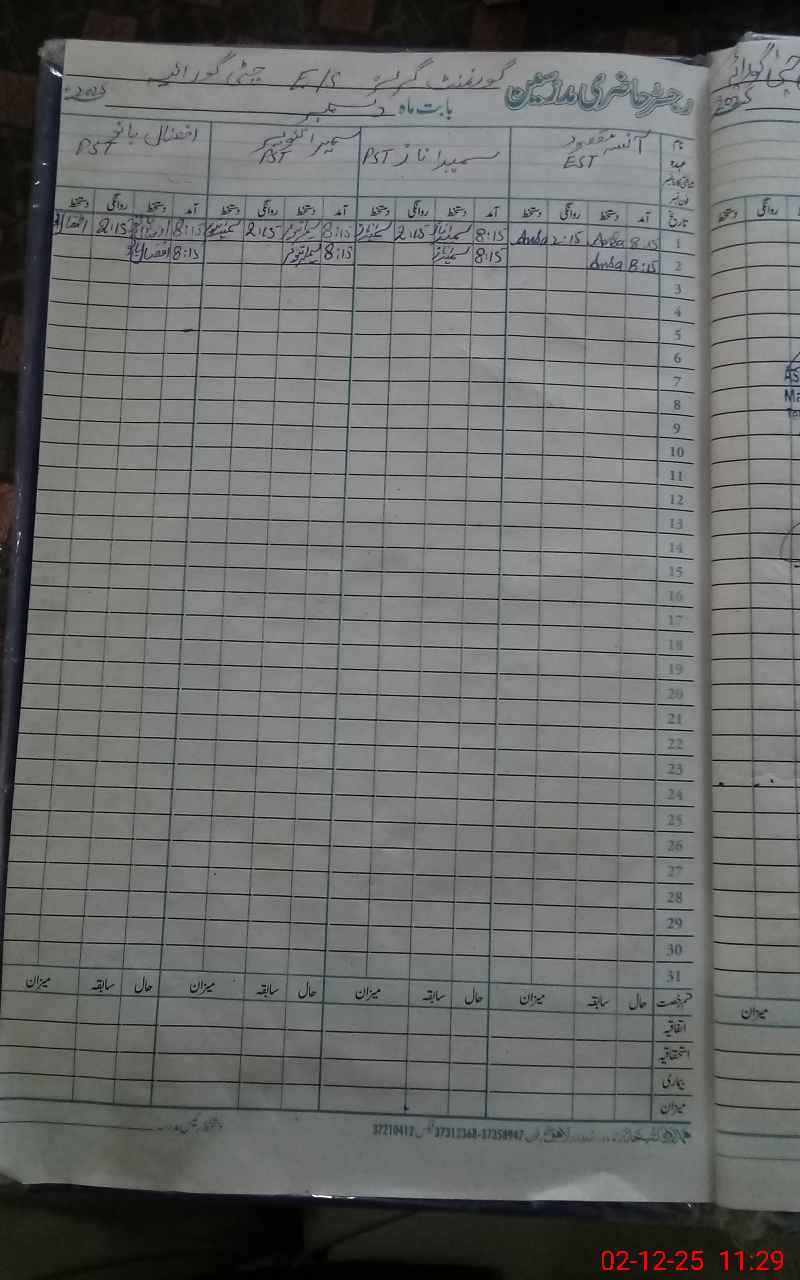 رجسٹر حاضری مدرسین گورنمنٹ گرلز E/S چٹی گورائیہ
بابت ماہ دسمبر 2025
نام آنسہ مقصود سمیرا ناز PST سمیرا کوثر افضال بانو
عہدہ EST PST PST
تاریخ آمد دستخط روانگی دستخط آمد دستخط روانگی دستخط آمد دستخط روانگی دستخط آمد دستخط روانگی دستخط
1 8:15 2:15 8:15 2:15 8:15 2:15 8:15 2:15
2 8:15 8:15 8:15 8:15
3
4
5
6
7
8
9
10
11
12
13
14
15
16
17
18
19
20
21
22
23
24
25
26
27
28
29
30
31
قسم رخصت حال سابقہ میزان حال سابقہ میزان حال سابقہ میزان حال سابقہ میزان
اتفاقیہ
استحقاقیہ
بیماری
میزان
37312368-37358947 37210412
2025
روانگی دستخط
میزان
02-12-25 11:29